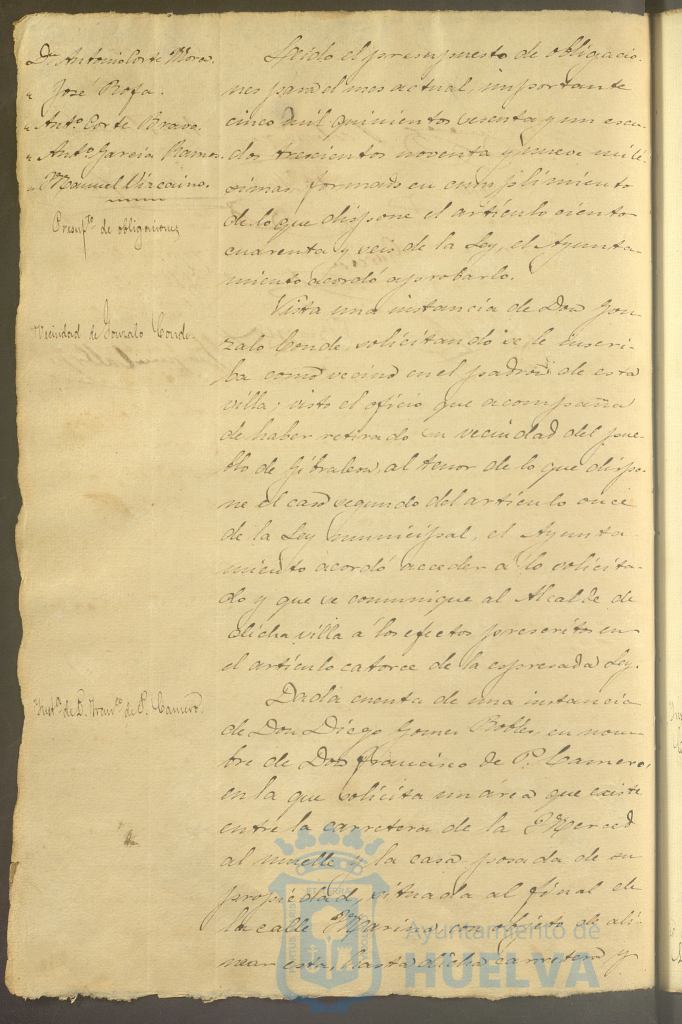 D. Antonio Corte Mora.
" José Rofa.
" Anto. Corte Bravo.
" Anto. García Ramos.
" Manuel Vizcaino.
Presupto. de obligaciones
Vecindad de Gonzalo Conde
Insta. de D. Franco. de P. Camero
Leido el presupuesto de obligacio-
nes para el mes actual, importante
cinco mil quinientos sesenta y un escu-
dos trescientos noventa y nueve milé-
simas, formado en cumplimiento
de lo que dispone el artículo ciento
cuarenta y seis de la Ley, el Ayunta-
miento acordó aprobarlo.
Vista una instancia de Don Gon-
zalo Conde, solicitando se le inscri-
ba como vecino en el padron de esta
villa; visto el oficio que acompaña
de haber retirado su vecindad del pue-
blo de Gibraleon, al tenor de lo que dispo-
ne el caso segundo del artículo once
de la Ley municipal, el Ayunta-
miento acordó acceder á lo solicita-
do y que se comunique al Alcalde de
dicha villa á los efectos prescritos en
el artículo catorce de la espresada Ley.
Dada cuenta de una instancia
de Don Diego Gomez Robles, en nom-
bre de Don Francisco de P. Camero,
en la que solicita un área que existe
entre la carretera de la Merced
al muelle y la casa posada de su
propiedad, situada al final de
la calle Marina, con objeto de ali-
near esta, hasta dicha carretera y
Ayuntamiento de
HUELVA